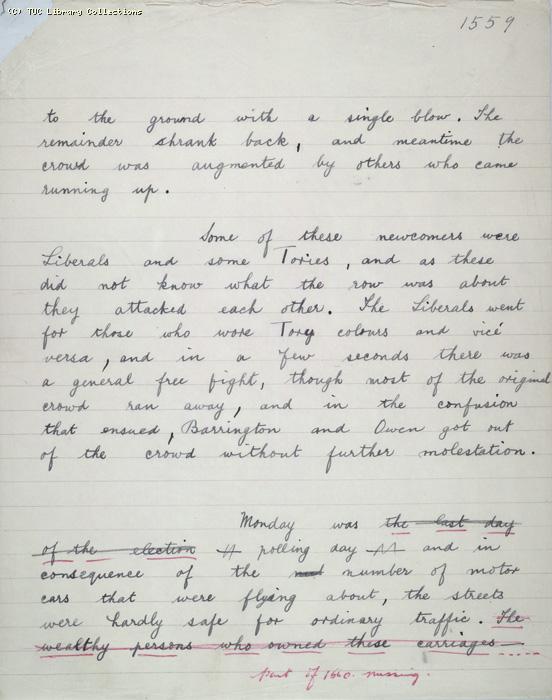 (C) TUC Library Collections
1559
to the ground with a single blow. The
remainder shrank back, and meantime the
crowd was augmented by others who came
running up.
Some of these newcomers were
Liberals and some Tories, and as these
did not know what the row was about
they attacked each other. The Liberals went
for those who wore Tory colours and vicé
versa, and in a few seconds there was
a general free fight, though most of the original
crowd ran away, and in the confusion
that ensued, Barrington and Owen got out
of the crowd without further molestation.
Monday was the last day
of the election polling day and in
consequence of the number of motor
cars that were flying about, the streets
were hardly safe for ordinary traffic. The
wealthy persons who owned these carriages
part of 1560. missing.